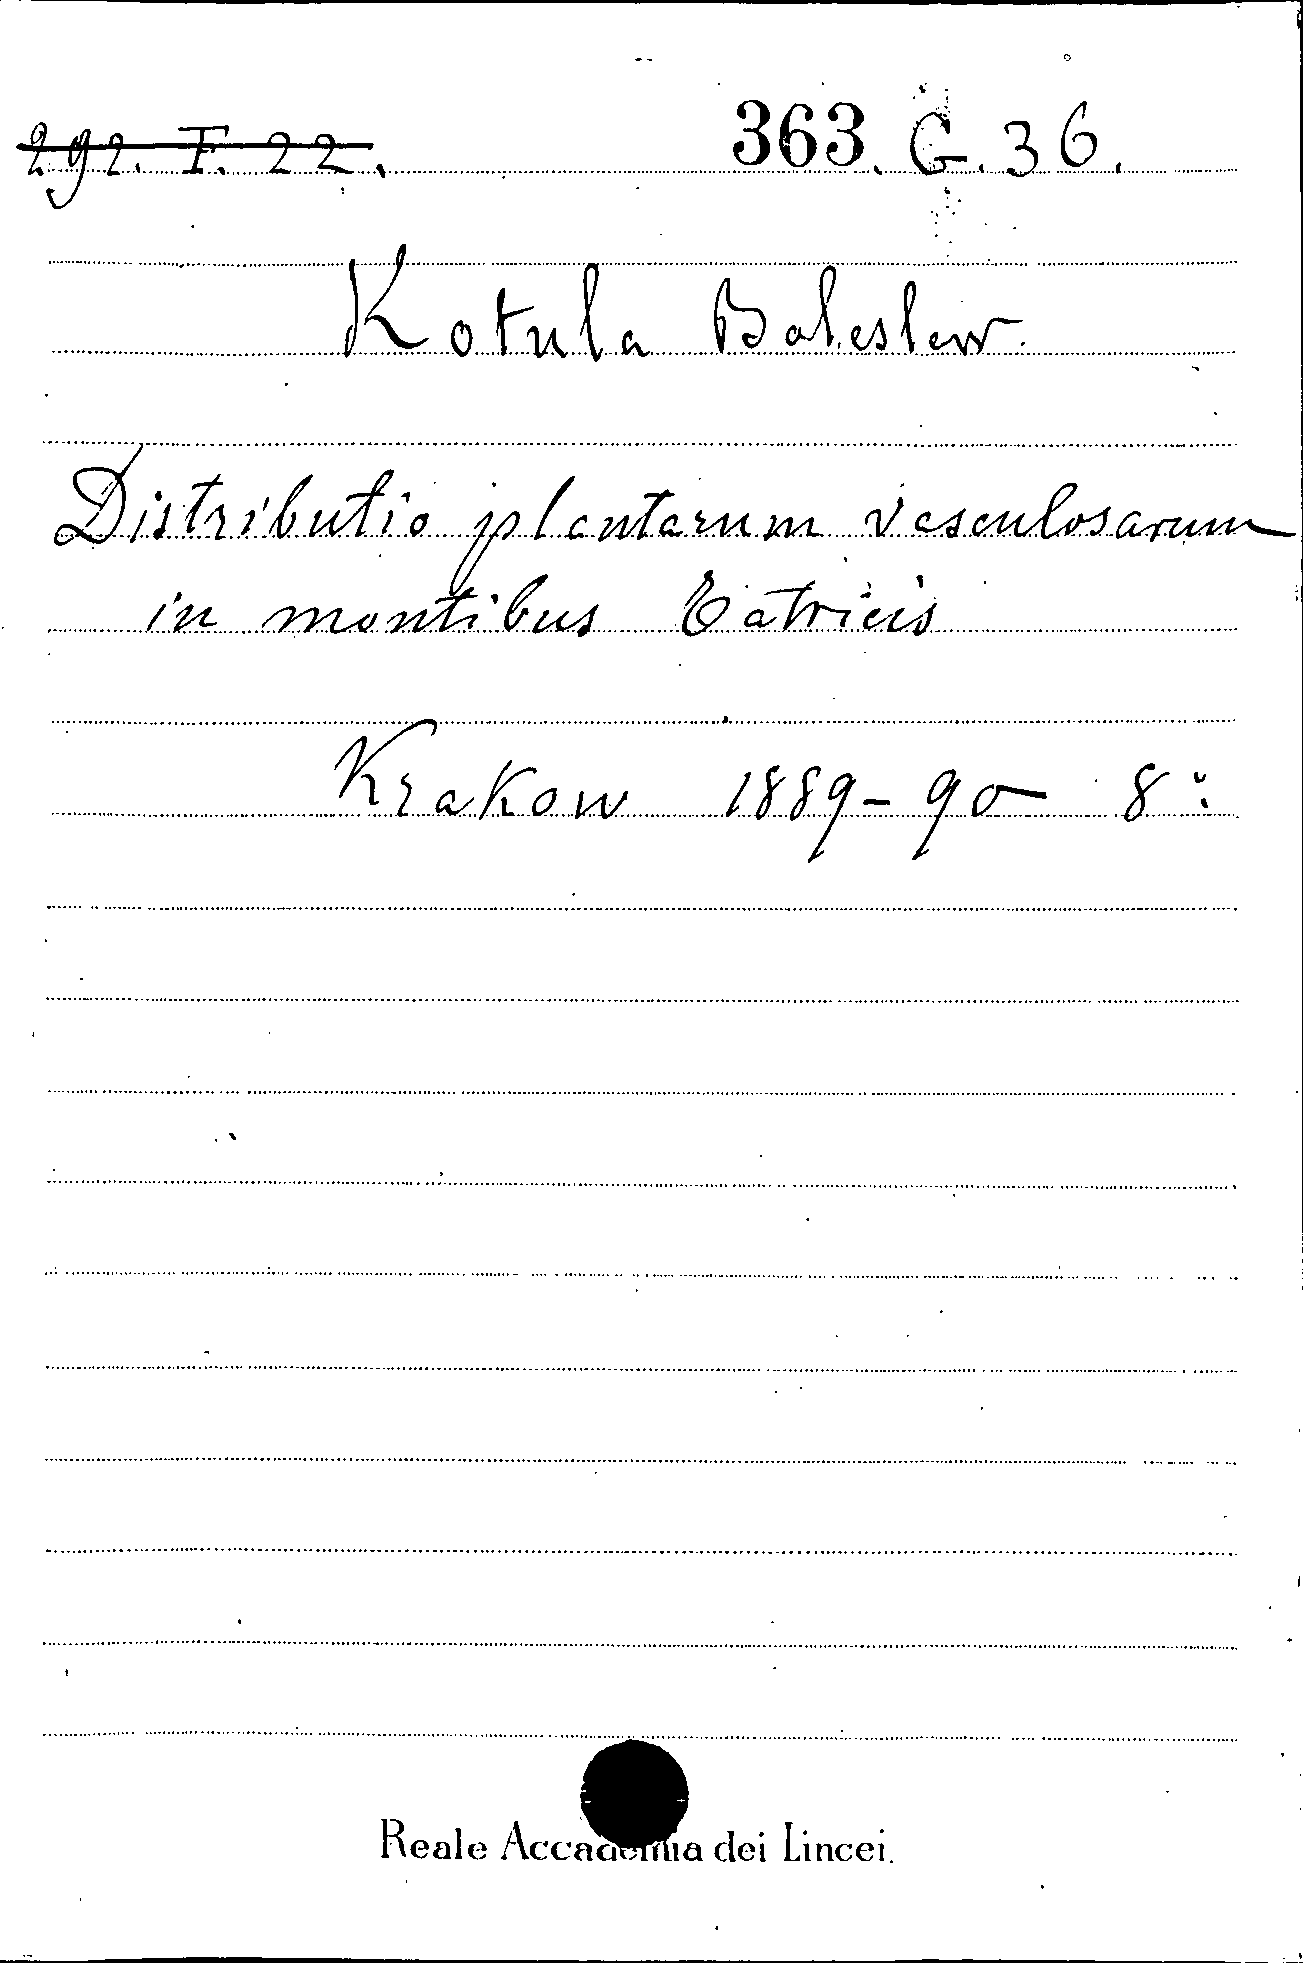 292. F. 22.
363. G. 36.
Kotula Boleslaw.
Distributio plantarum vasculosarum
in montibus Tatricis
Krakow 1889-90 8:
Reale Accademia dei Lincei.